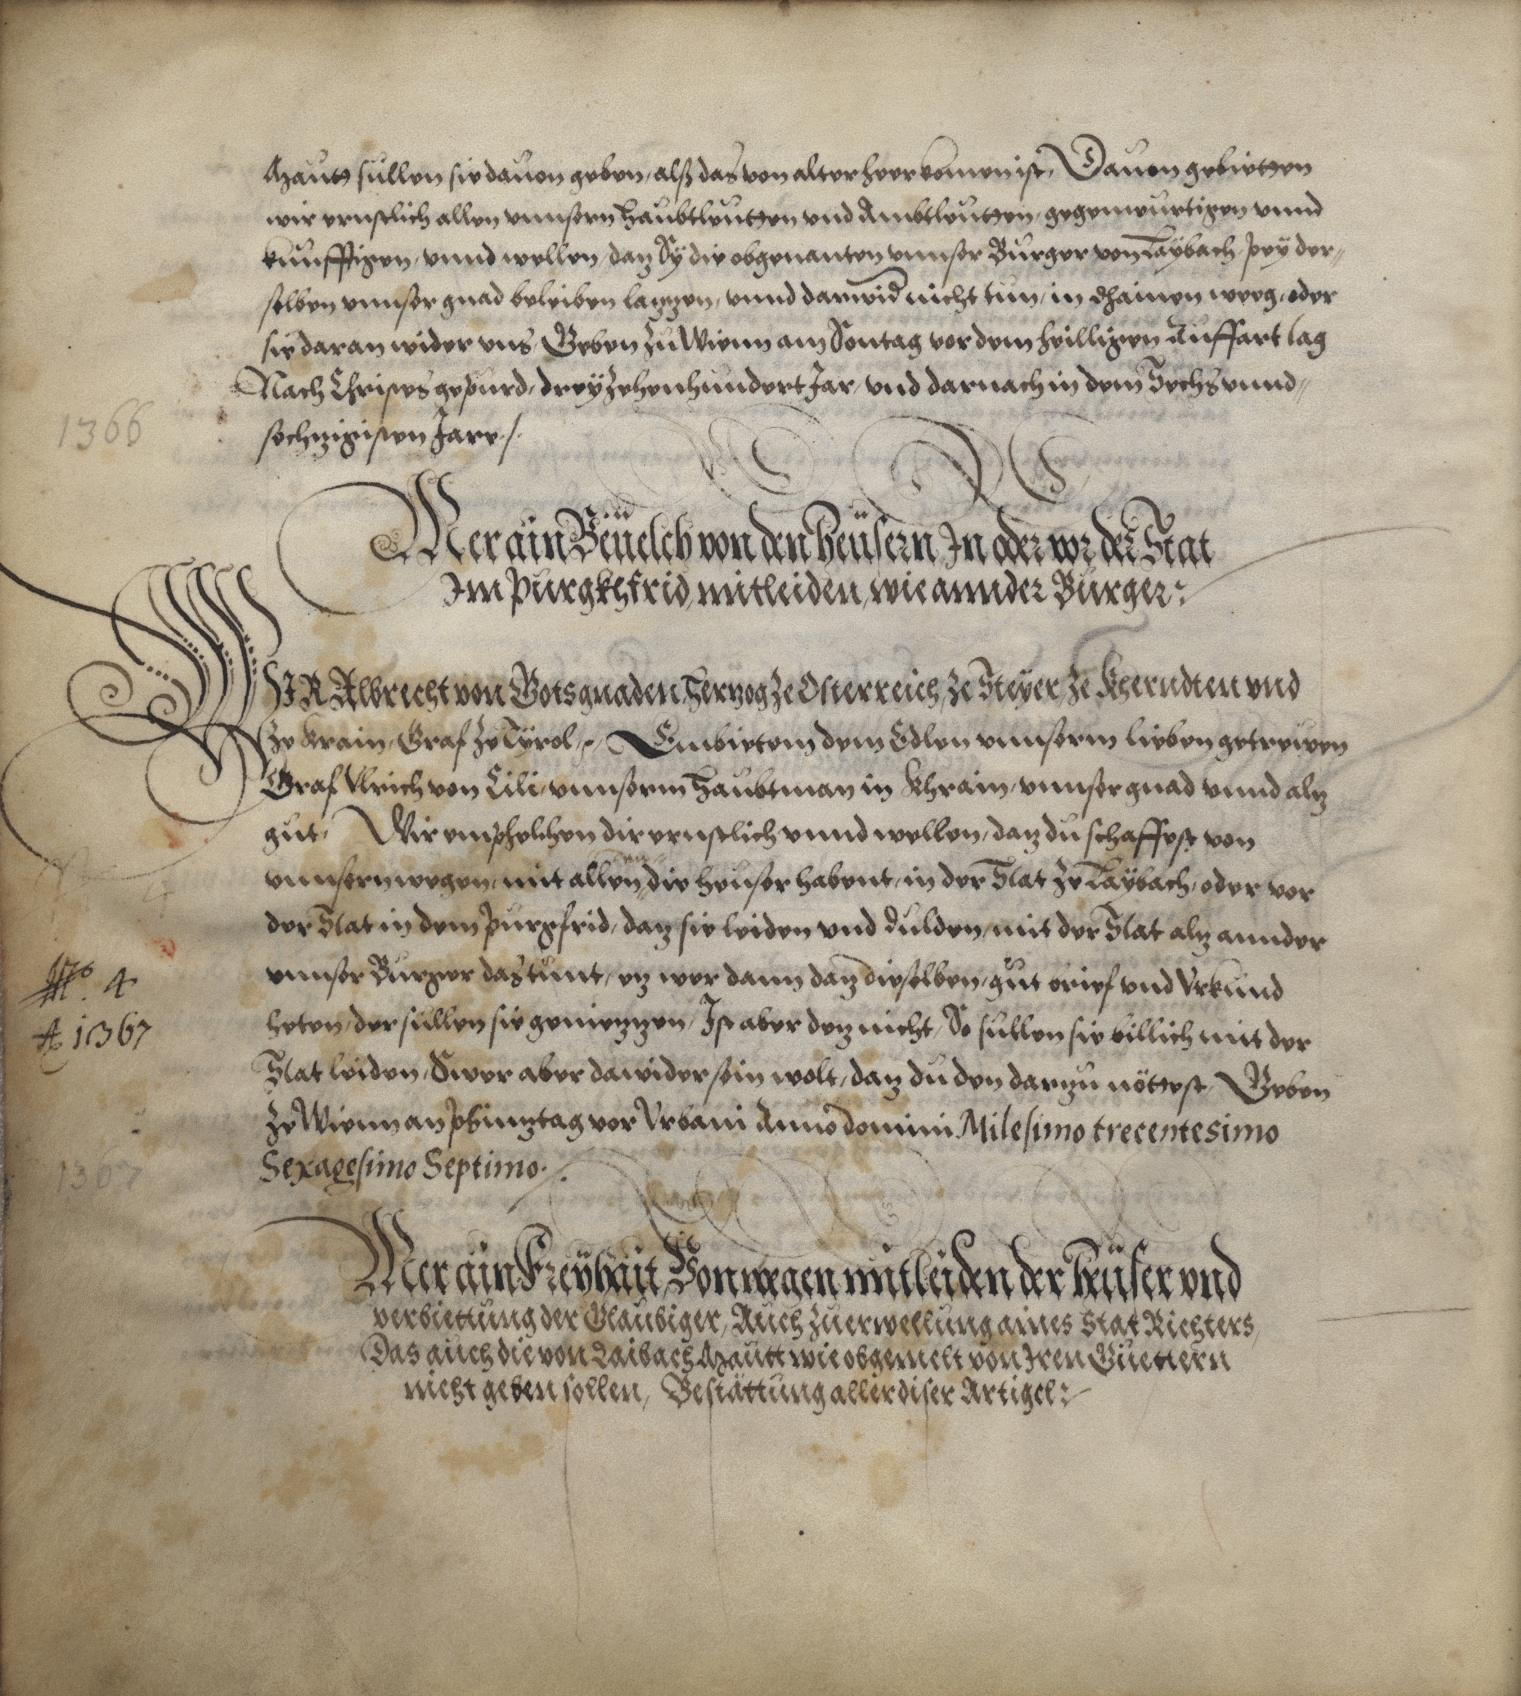 Mautt sullen sie dauon geben, alß das von alter heer komen ist, Dauon gebietten
wir ernstlich allen vnnsern Haubtleutten vnd Ambtleutten, gegenwurtigen vnnd
kunfftigen, vnnd wellen, daz Sy die obgenanten vnnser Burger von Laybach, pey der-
selben vnnser gnad beleiben lazzen, vnnd darwid nicht tun, in dhainen weeg, oder
sie daran wider vns, Geben Zu Wienn am Sontag vor dem heilligen Auffart tag
Nach Christes gepurd, dreyzehenhundert Jar, vnd darnach in dem Sechsvnnd-
sechzigisten Jare.
1366
Mer ain Beuelch von den heüsern In oder vor der Stat
Im Purgkhfrid, mitleiden, wie annder Burger:
WIR Albrecht von Gots gnaden Hertzog ze Osterreich, ze Steyer, ze Kherndten vnd
ze Krain, Graf ze Tyrol, Embieten dem Edlen vnnserm lieben getrewen
Graf Vlrich von Cili, vnnserm Haubtman in Khrain, vnnser gnad vnnd alz
gut, Wir emphelchen dir ernstlich vnnd wellen, daz du schaffest von
vnnsern wegen, mit allen die heuser habent, in der Stat ze Laybach, oder vor
der Stat in dem Purgfrid, daz sie leiden vnd dulden, mit der Stat alz annder
vnnser Burger das tunt, ez wer dann daz dieselben, gut brief vnd Vrkund
N.o 4
heten, der sullen sie geniezzen, Ist aber dez nicht, So sullen sie billich mit der
A 1367
Stat leiden, Swer aber dawider sein wolt, daz du den darzu nöttest, Geben
ze Wienn an Phinztag vor Vrbani Anno domini Milesimo trecentesimo
Sexagesimo Septimo.
1367
Mer ain Freyhait, Von wegen mitleiden der heüser vnd
verbiettung der Glaubiger, Auch zu erwellung aines Stat Richters,
Das auch die von Laibach Mautt wie obgemelt von Iren Guettern
nicht geben sollen, Bestättung aller diser Artigel: